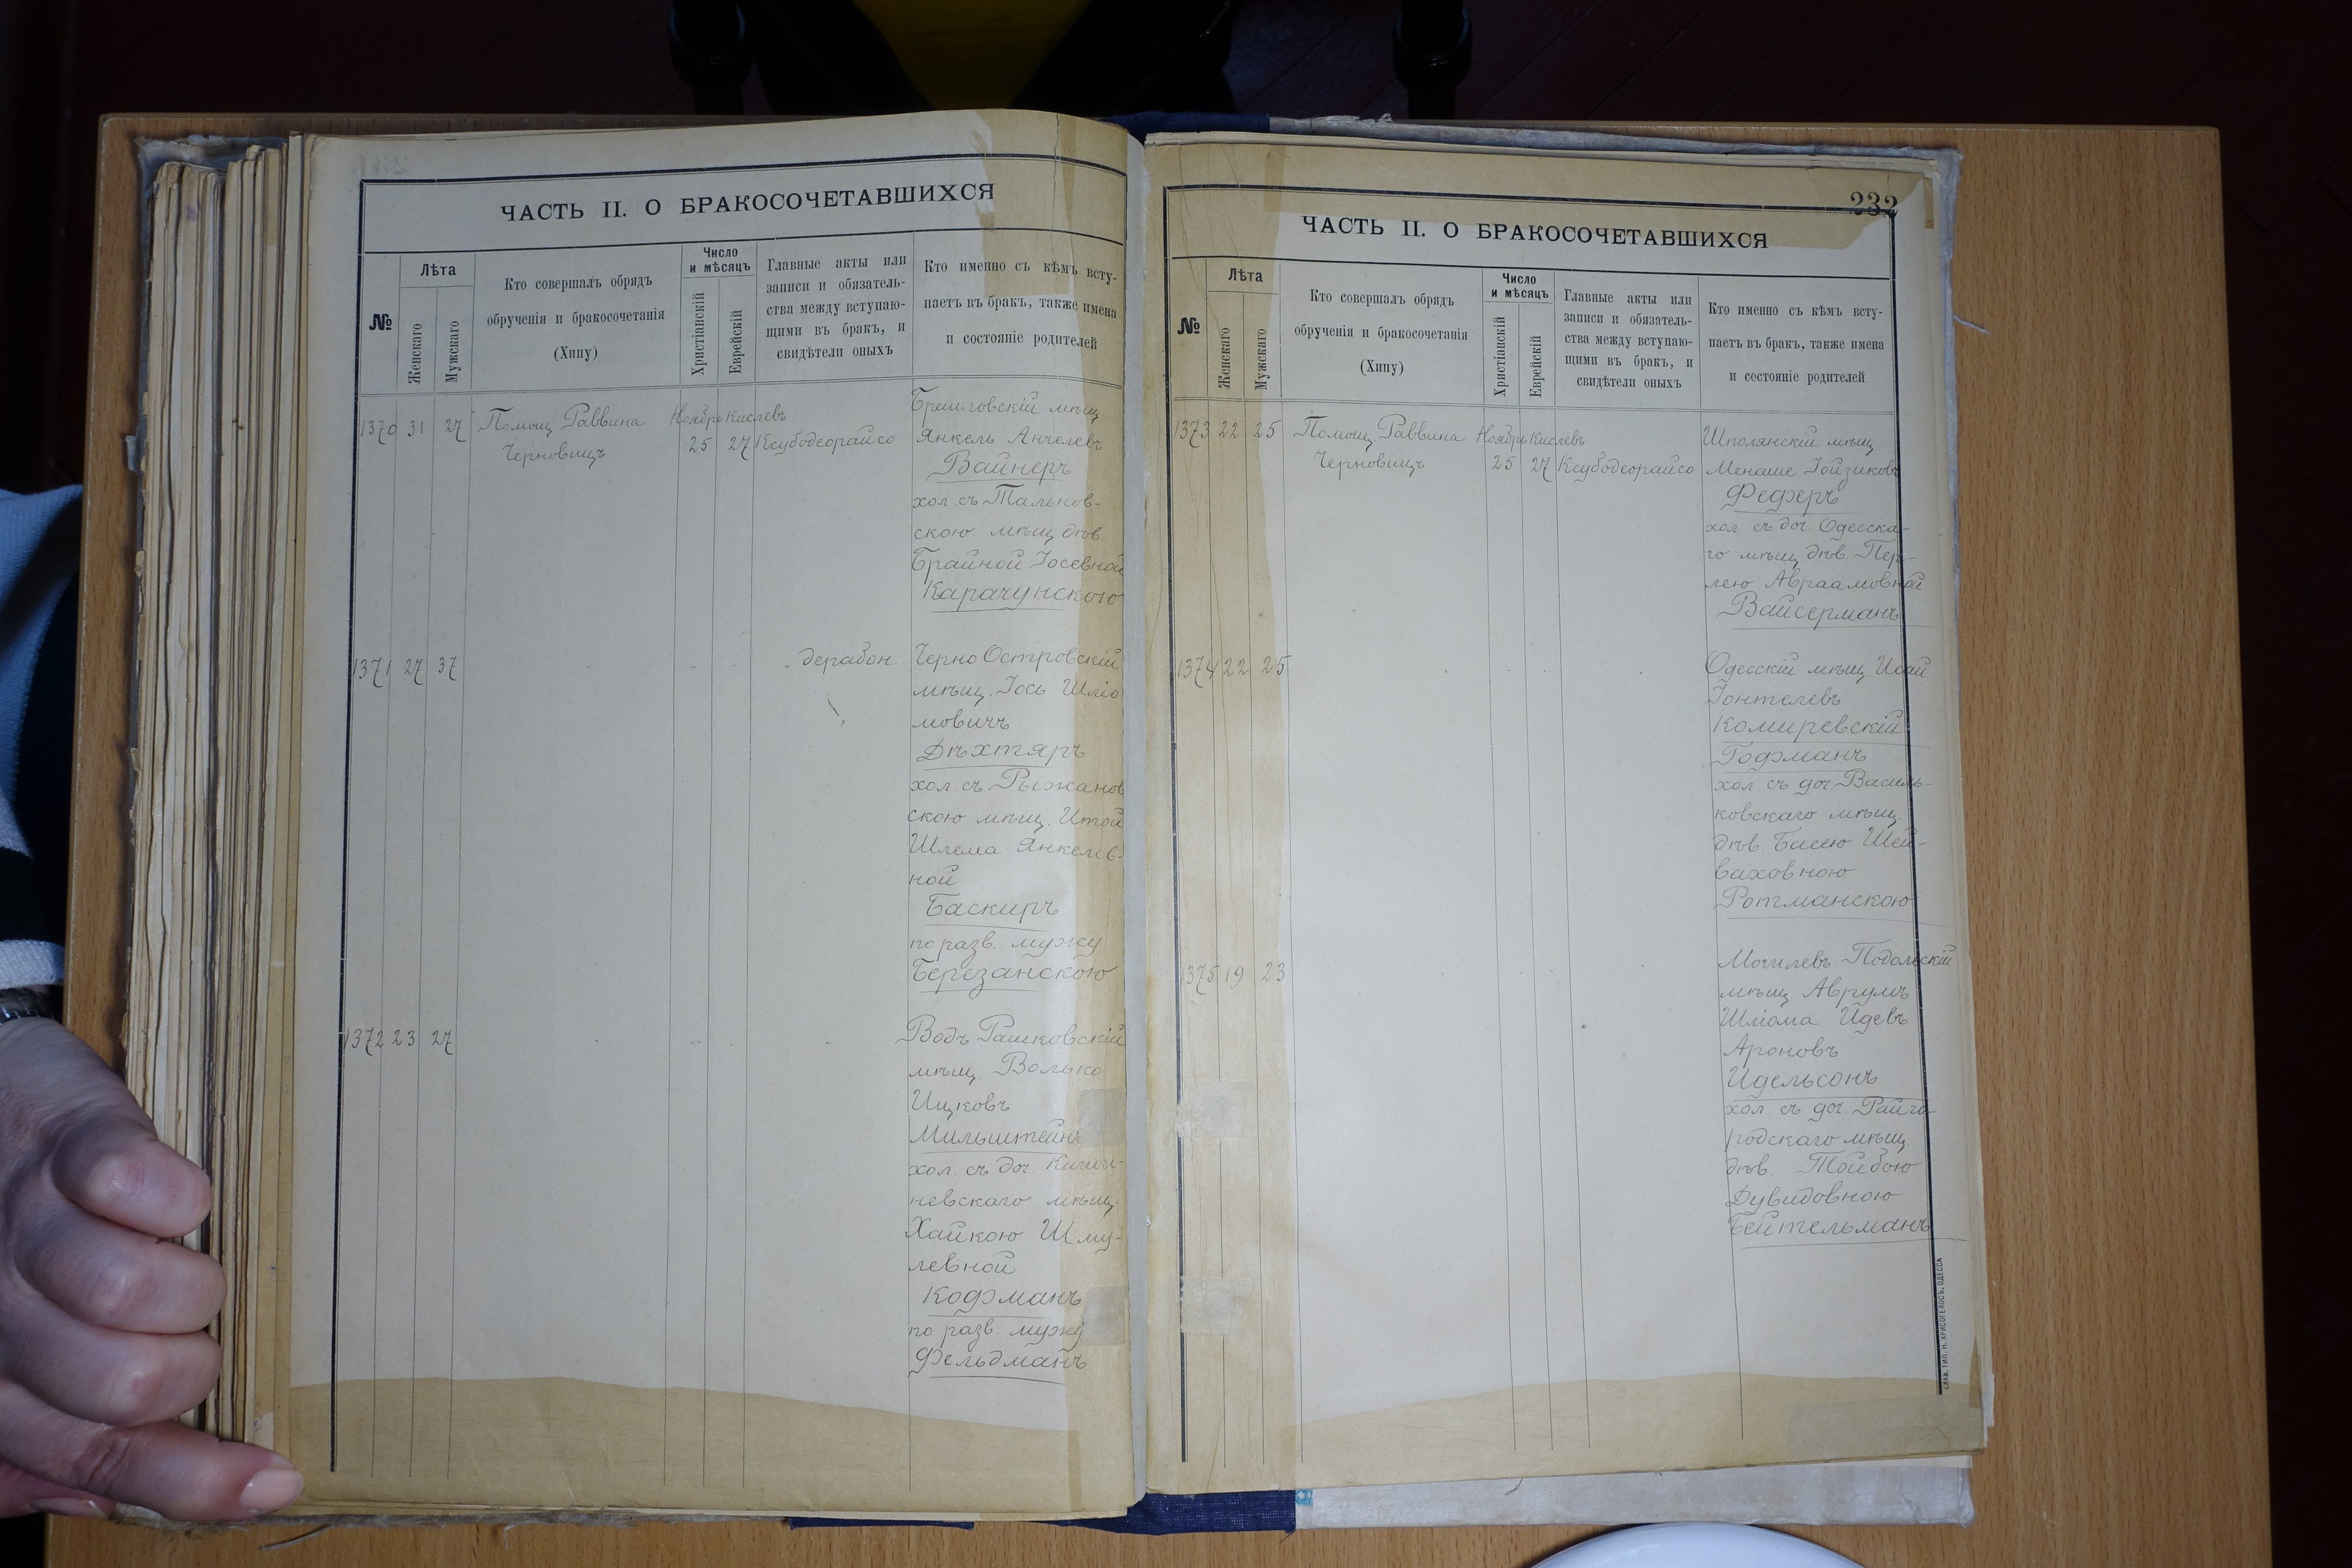 ЧАСТЬ II. О БРАКОСОЧЕТАВШИХСЯ
№
Лѣта
Женскаго
Мужскаго
Кто совершалъ обрядъ
обрученія и бракосочетанія
(Хипу)
Число
и мѣсяцъ
Христіанскій
Еврейскій
Главные акты или
записи и обязатель-
ства между вступаю-
щими въ бракъ, и
свидѣтели оныхъ
Кто именно съ кѣмъ всту-
паетъ въ бракъ, также имена
и состояніе родителей
1370 31 27 Помощ Раввина Ноябрь Кислевъ
Черновицъ 25 27 Ксубодеорайсо
Браиловскій мѣщ
Янкель Анчелевъ
Вайнеръ
хол. съ Тальнов-
скою мѣщ. дѣв.
Брайной Іосевной
Карачунскою
1371 27 37 " " " дерабон. Черно Островскій
мѣщ. Іось Шліо
мовичъ
Дѣхтяръ
хол. съ Рыжанов
скою мѣщ. Итой
Шлема Янкелев-
ной
Баскиръ
по разв. мужу
Березанскою
1372 23 27 Водъ Рашковскій
мѣщ. Волько
Ицковъ
Мильштейнъ
хол. съ доч. Киши-
невскаго мѣщ.
Хайкою Шму-
левной
Кофманъ
по разв. мужу
Фельдманъ
232
ЧАСТЬ II. О БРАКОСОЧЕТАВШИХСЯ
№
Лѣта
Женскаго
Мужскаго
Кто совершалъ обрядъ
обрученія и бракосочетанія
(Хипу)
Число
и мѣсяцъ
Христіанскій
Еврейскій
Главные акты или
записи и обязатель-
ства между вступаю-
щими въ бракъ, и
свидѣтели оныхъ
Кто именно съ кѣмъ всту-
паетъ въ бракъ, также имена
и состояніе родителей
1373 22 25 Помощ Раввина Ноябрь Кислевъ
Черновицъ 25 27 Ксубодеорайсо
Шполянскій мѣщ
Менаше Іойзиковъ
Феферъ
хол. съ доч. Одесска-
го мѣщ. дѣв. Пер-
лею Авраамовной
Вайсерманъ
1374 22 25 Одесскій мѣщ. Исай
Іонтелевъ
Комиревскій
Гофманъ
хол. съ доч. Василь-
ковскаго мѣщ.
дѣв. Басею Шей-
ваховною
Ротманскою
1375 19 23 Могилевъ Подольскій
мѣщ. Аврумъ
Шліома Идевъ
Ароновъ
Идельсонъ
хол. съ доч. Райго-
родскаго мѣщ.
дѣв. Тойбою
Дувидовною
Бейтельманъ
СЛАВ. ТИП. Н. ХРИСОГЕЛОСЪ, ОДЕССА